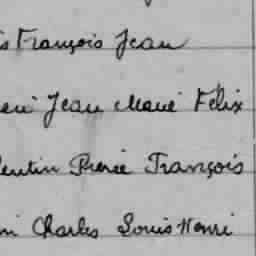 François Jean
Jean Marie Félix
Pierre François
Charles Louis Henri